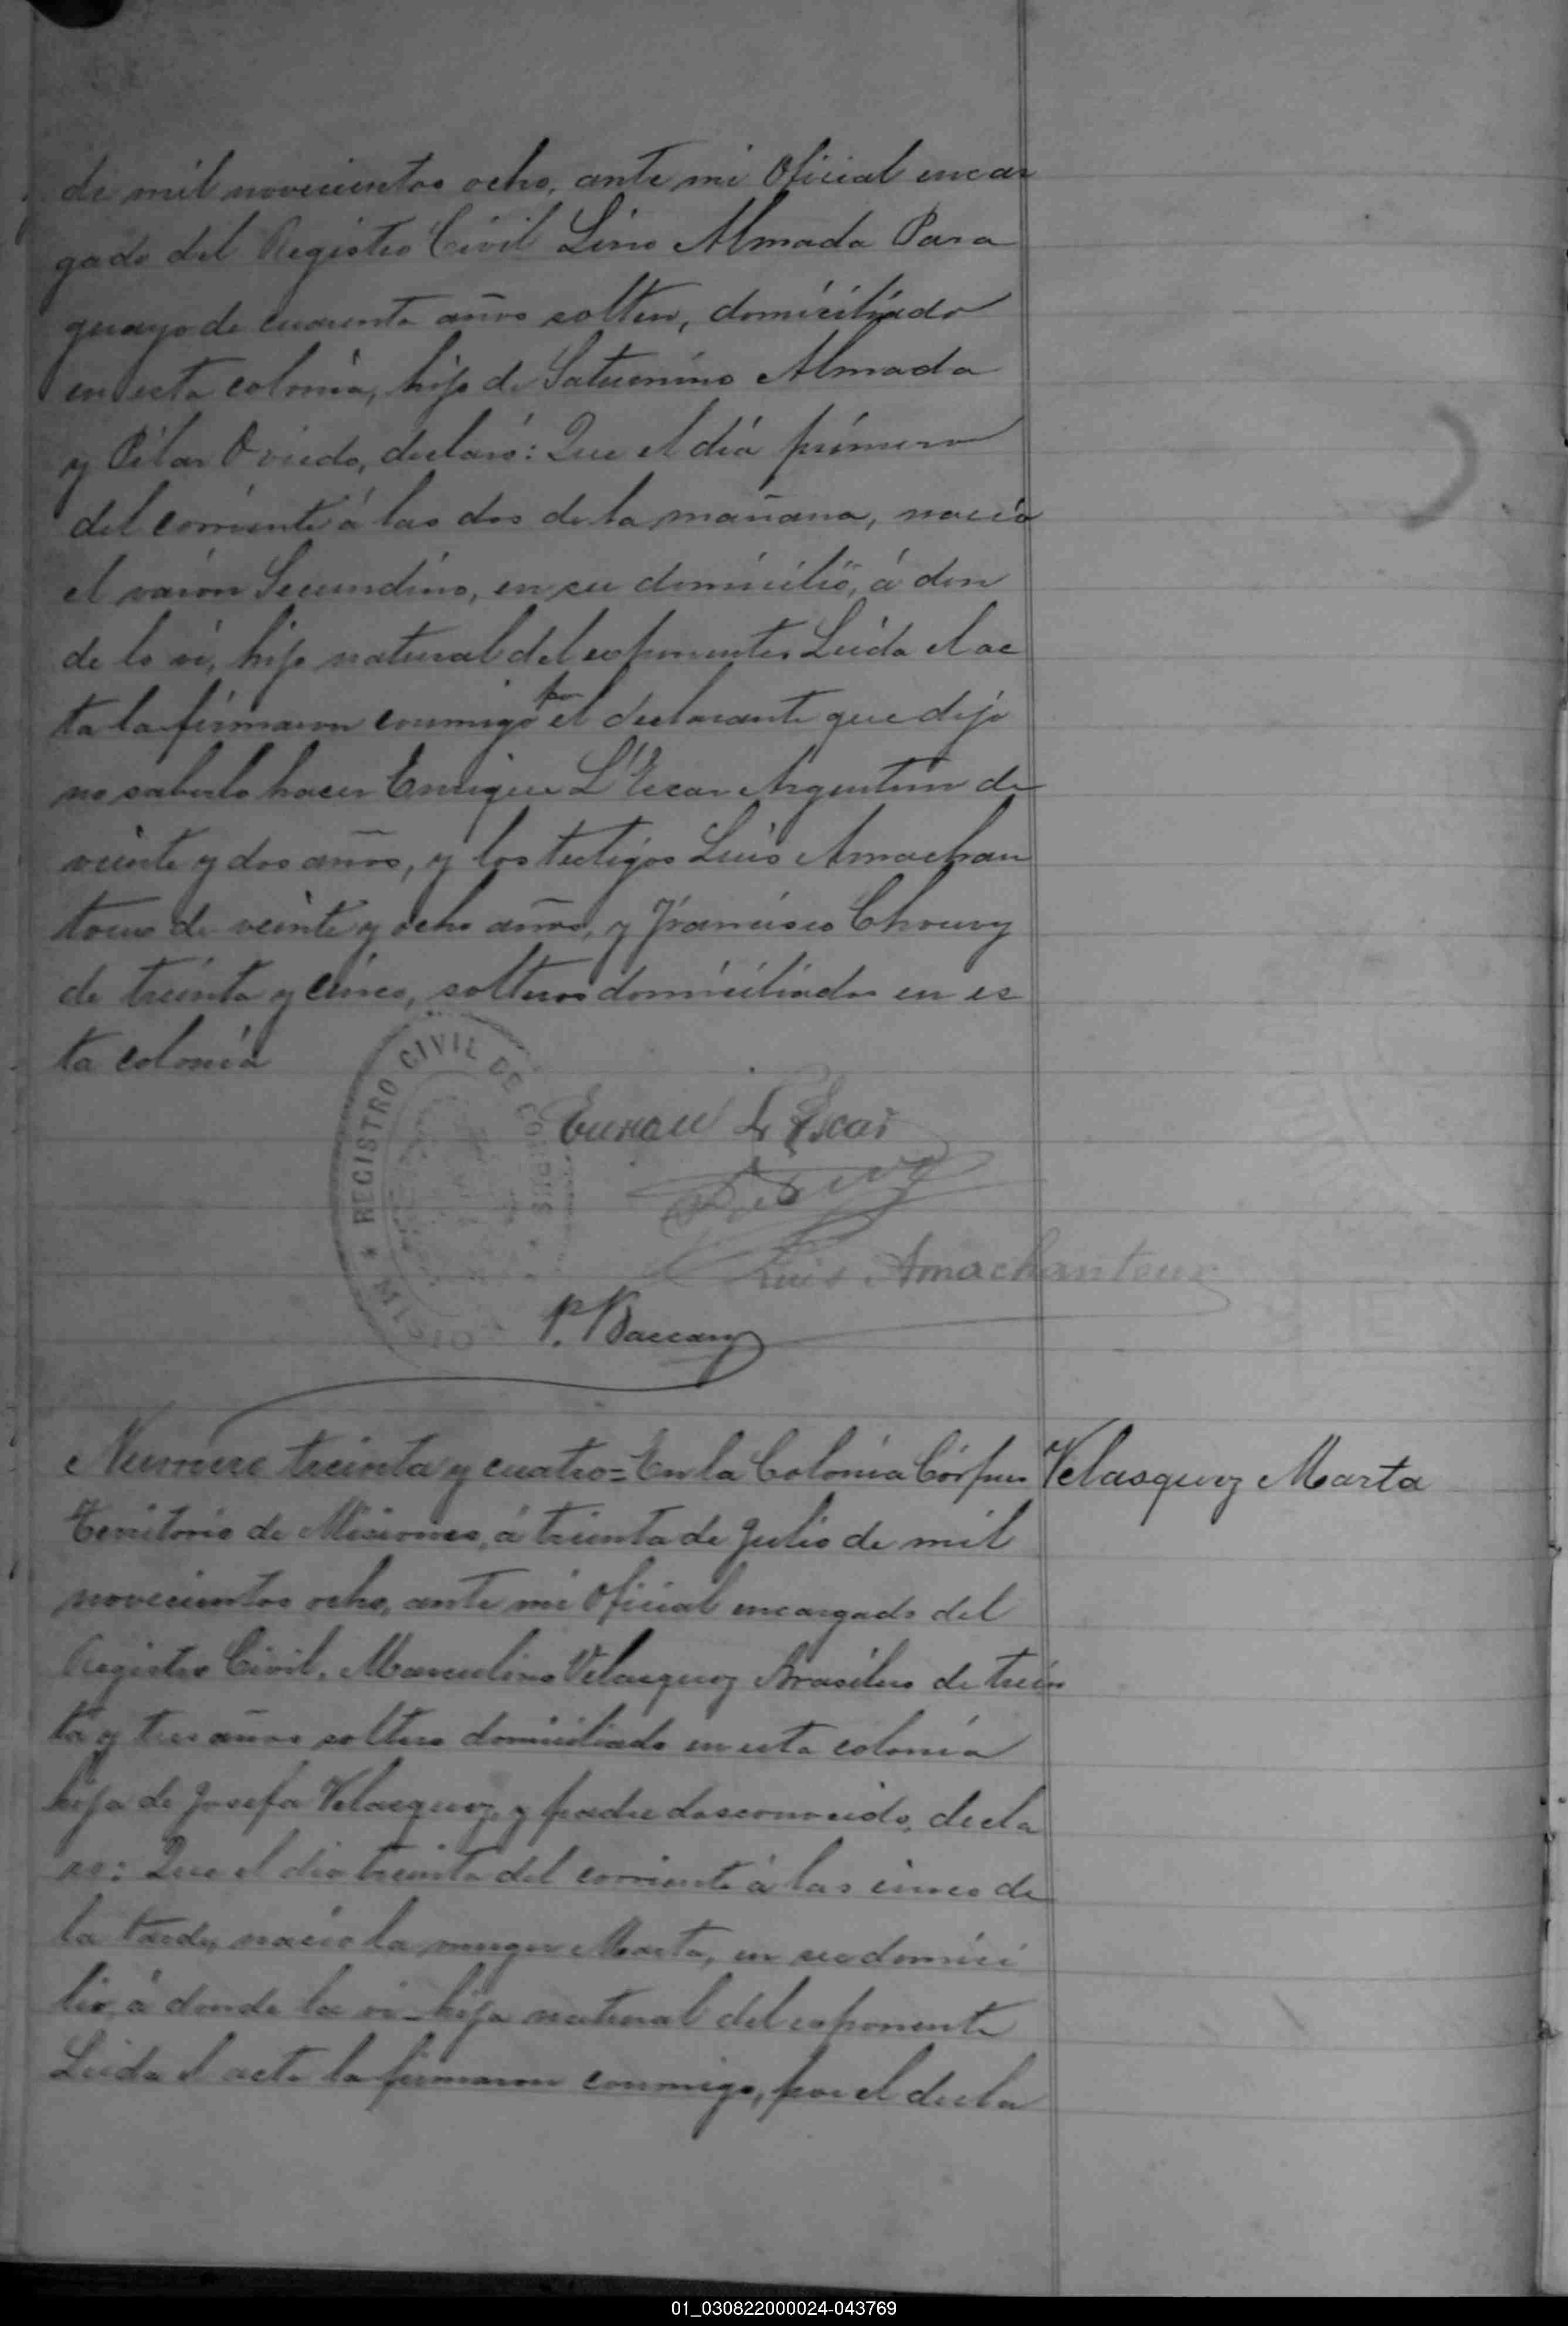 de mil novecientos ocho, ante mi Oficial encar
gado del Registro Civil Lino Almada Para
guayo de cuarenta años soltero, domiciliado
en esta colonia, hijo de Saturnino Almada
y Pilar Oviedo, declaró: Que el día primero
del corriente á las dos de la mañana, nació
el varón Secundino, en su domicilio, á don
de lo ví, hijo natural del exponente. Leida el ac
ta la firmaron conmigo por el declarante que dijo
no saberlo hacer Enrique L'Escar Argentino de
veinte y dos años, y los testigos Luis Amachan
teur de veinte y ocho años, y Francisco Chouvy
de treinta y cinco, solteros domiciliados en es
ta colonia
REGISTRO CIVIL DE CORPUS
L'Escar
Luis Amachanteur
P. Baccary
Numero treinta y cuatro = En la Colonia Córpus
Velasquez Marta
Territorio de Misiones, á treinta de Julio de mil
novecientos ocho, ante mi Oficial encargado del
Registro Civil, Marculino Velasquez Brasilero de trein
ta y tres años soltero domiciliado en esta colonia
hijo de Josefa Velasquez, y padre desconocido, decla
ro: Que el dia treinta del corriente á las cinco de
la tarde, nació la muger Marta, en su domici
lio, á donde la vi - hija natural del exponente
Leida el acta la firmaron conmigo, por el decla
01_030822000024-043769